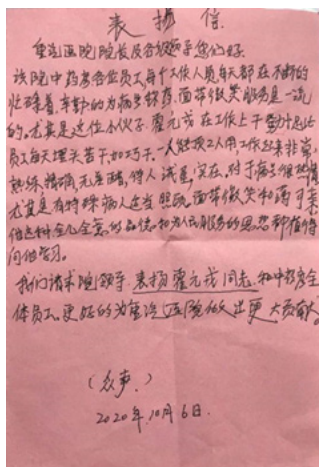 表扬信
医院院长及各级领导您们好
该院中药房各位员工,每个工作人员每天都在不断的
忙碌着,辛勤的为病号抓药,面带微笑服务是一流
的,尤其是这位小伙子霍元戎在工作上干劲十足
员工每天埋头苦干,加巧干,一人能按2人用,工作结果非常
熟练精确无差错,待人诚意,实在,对于病号很热情
尤其是有特殊病人适当照顾,面带微笑和蔼可亲
他这种全心全意的品德,和为人民服务的思想都值得
向他学习。
我们请求院领导,表扬霍元戎同志,和中药房全
体员工,更好的为医院做出更大贡献。
(众声.)
2020年.10月6日.